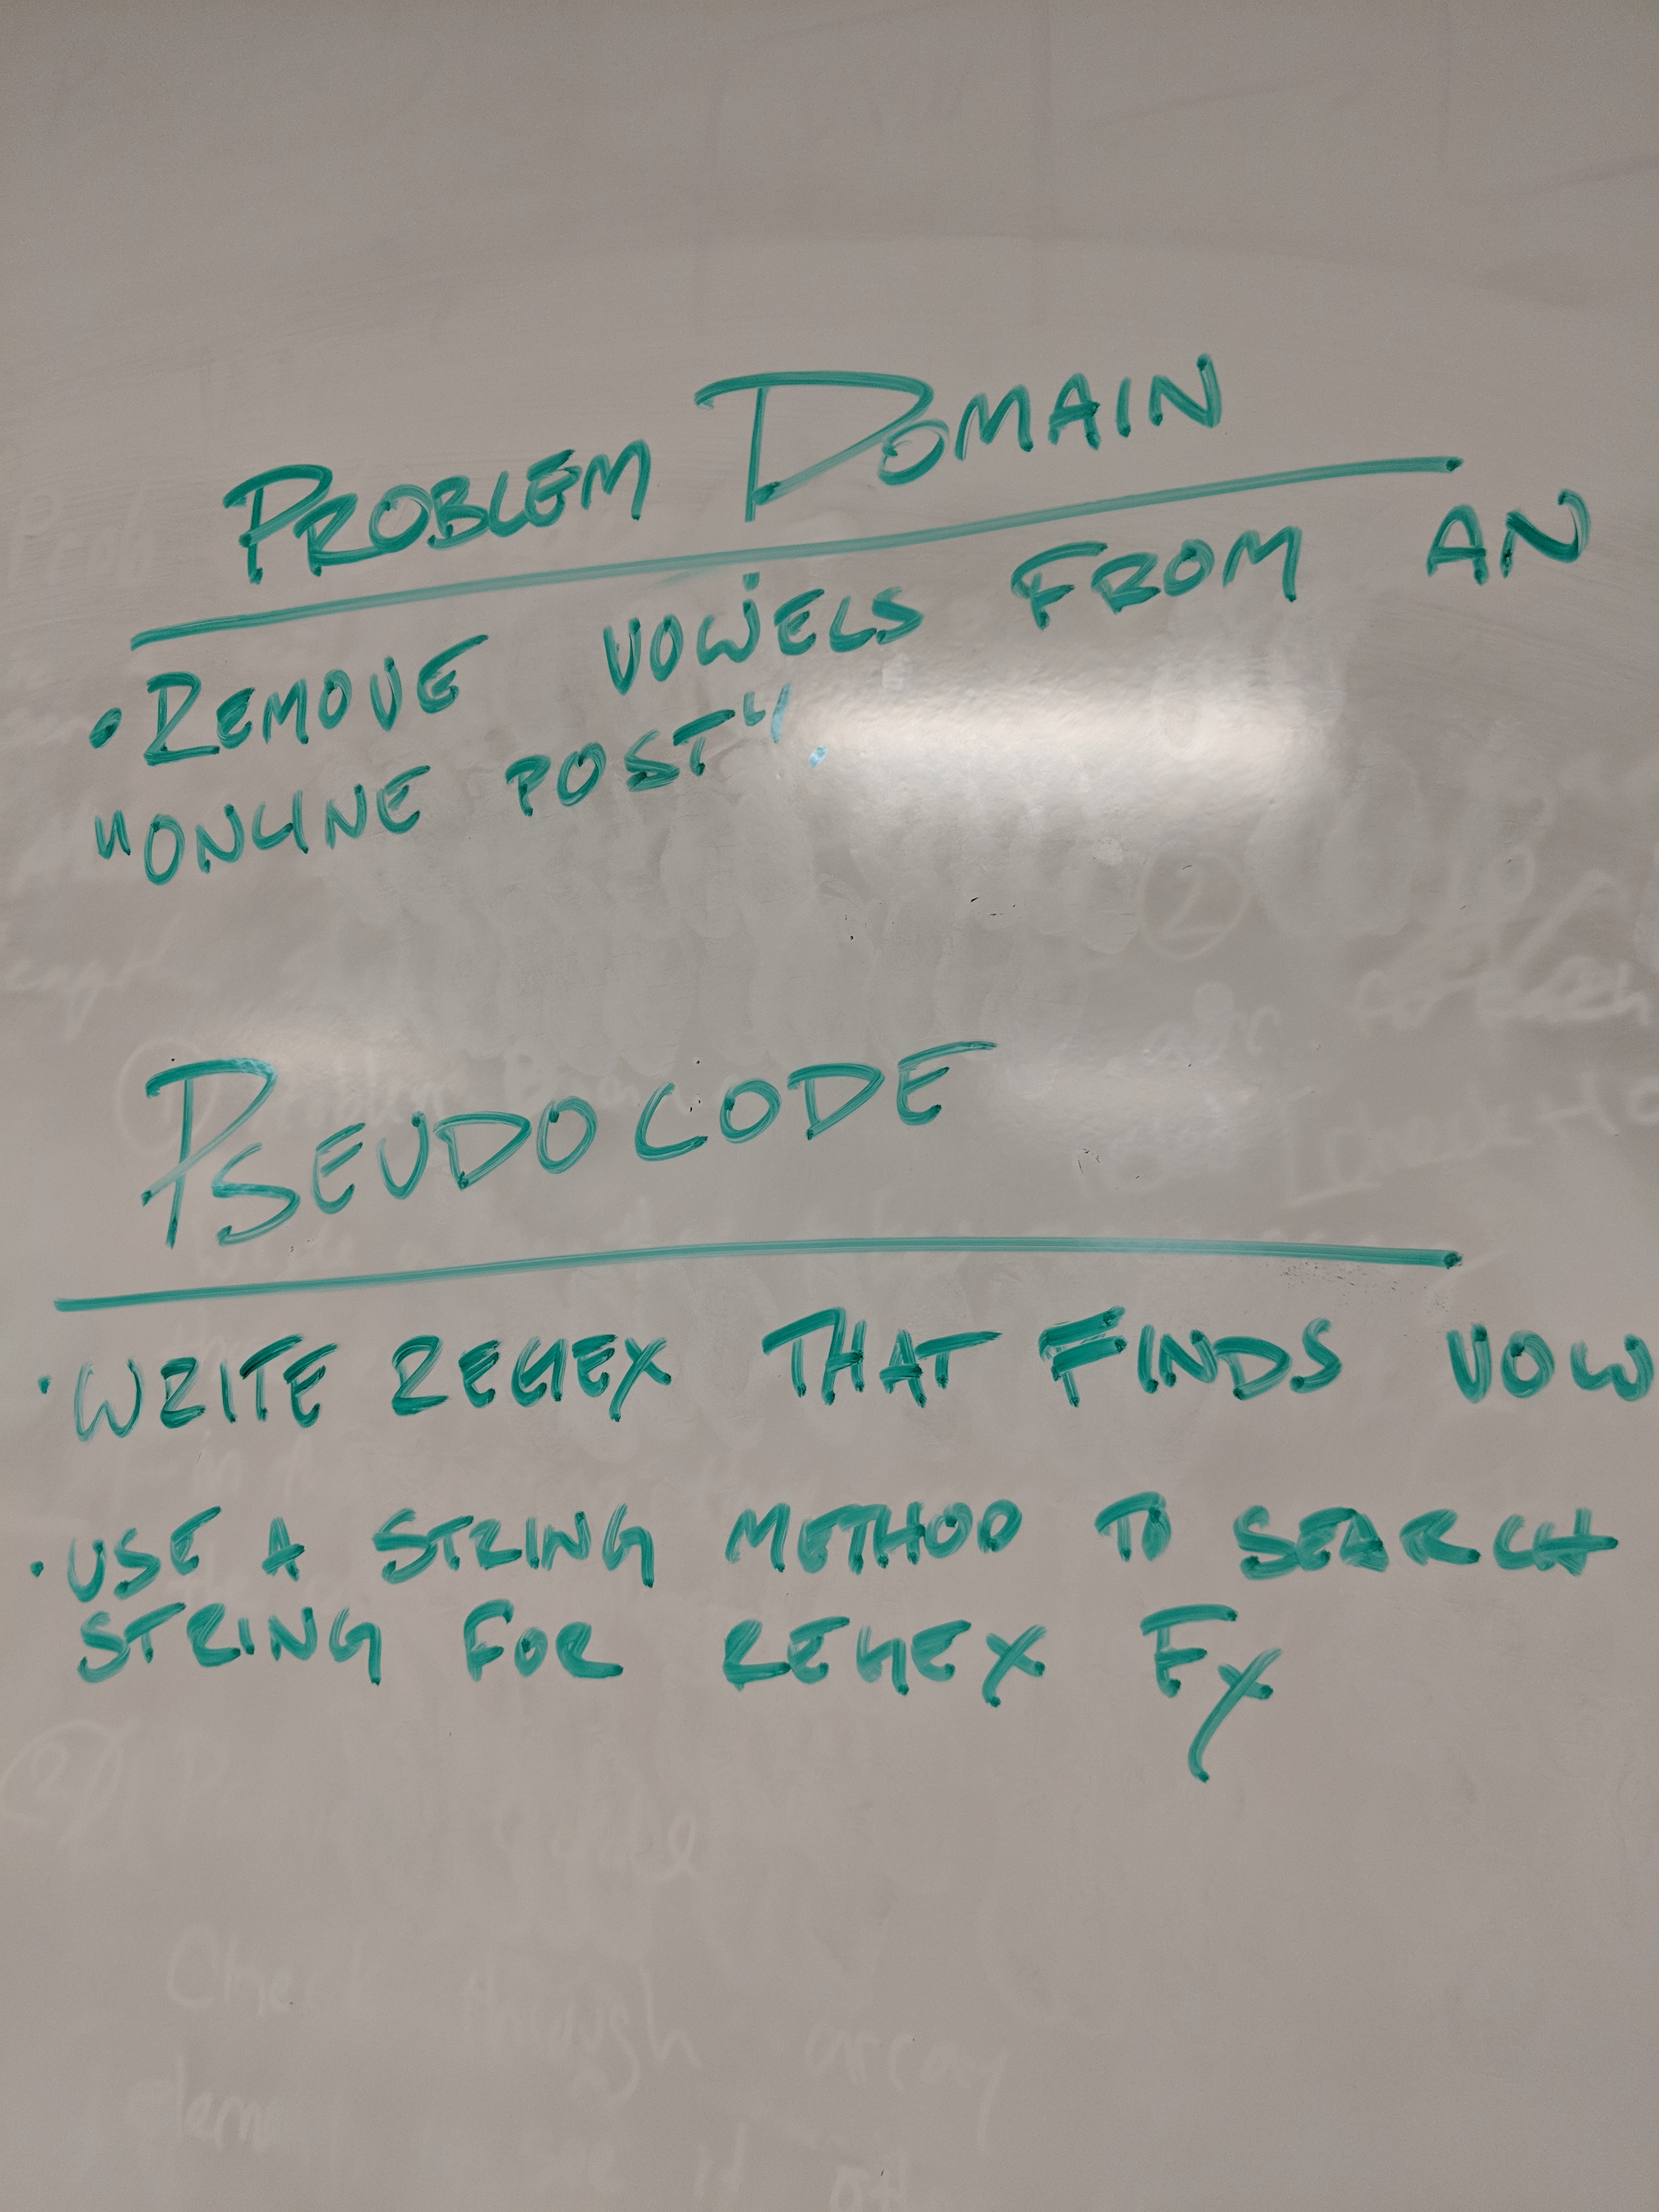 PROBLEM DOMAIN
• REMOVE VOWELS FROM AN
"ONLINE POST".
PSEUDOCODE
• WRITE REGEX THAT FINDS VOW
• USE A STRING METHOD TO SEARCH
STRING FOR REGEX Fx
Check through array